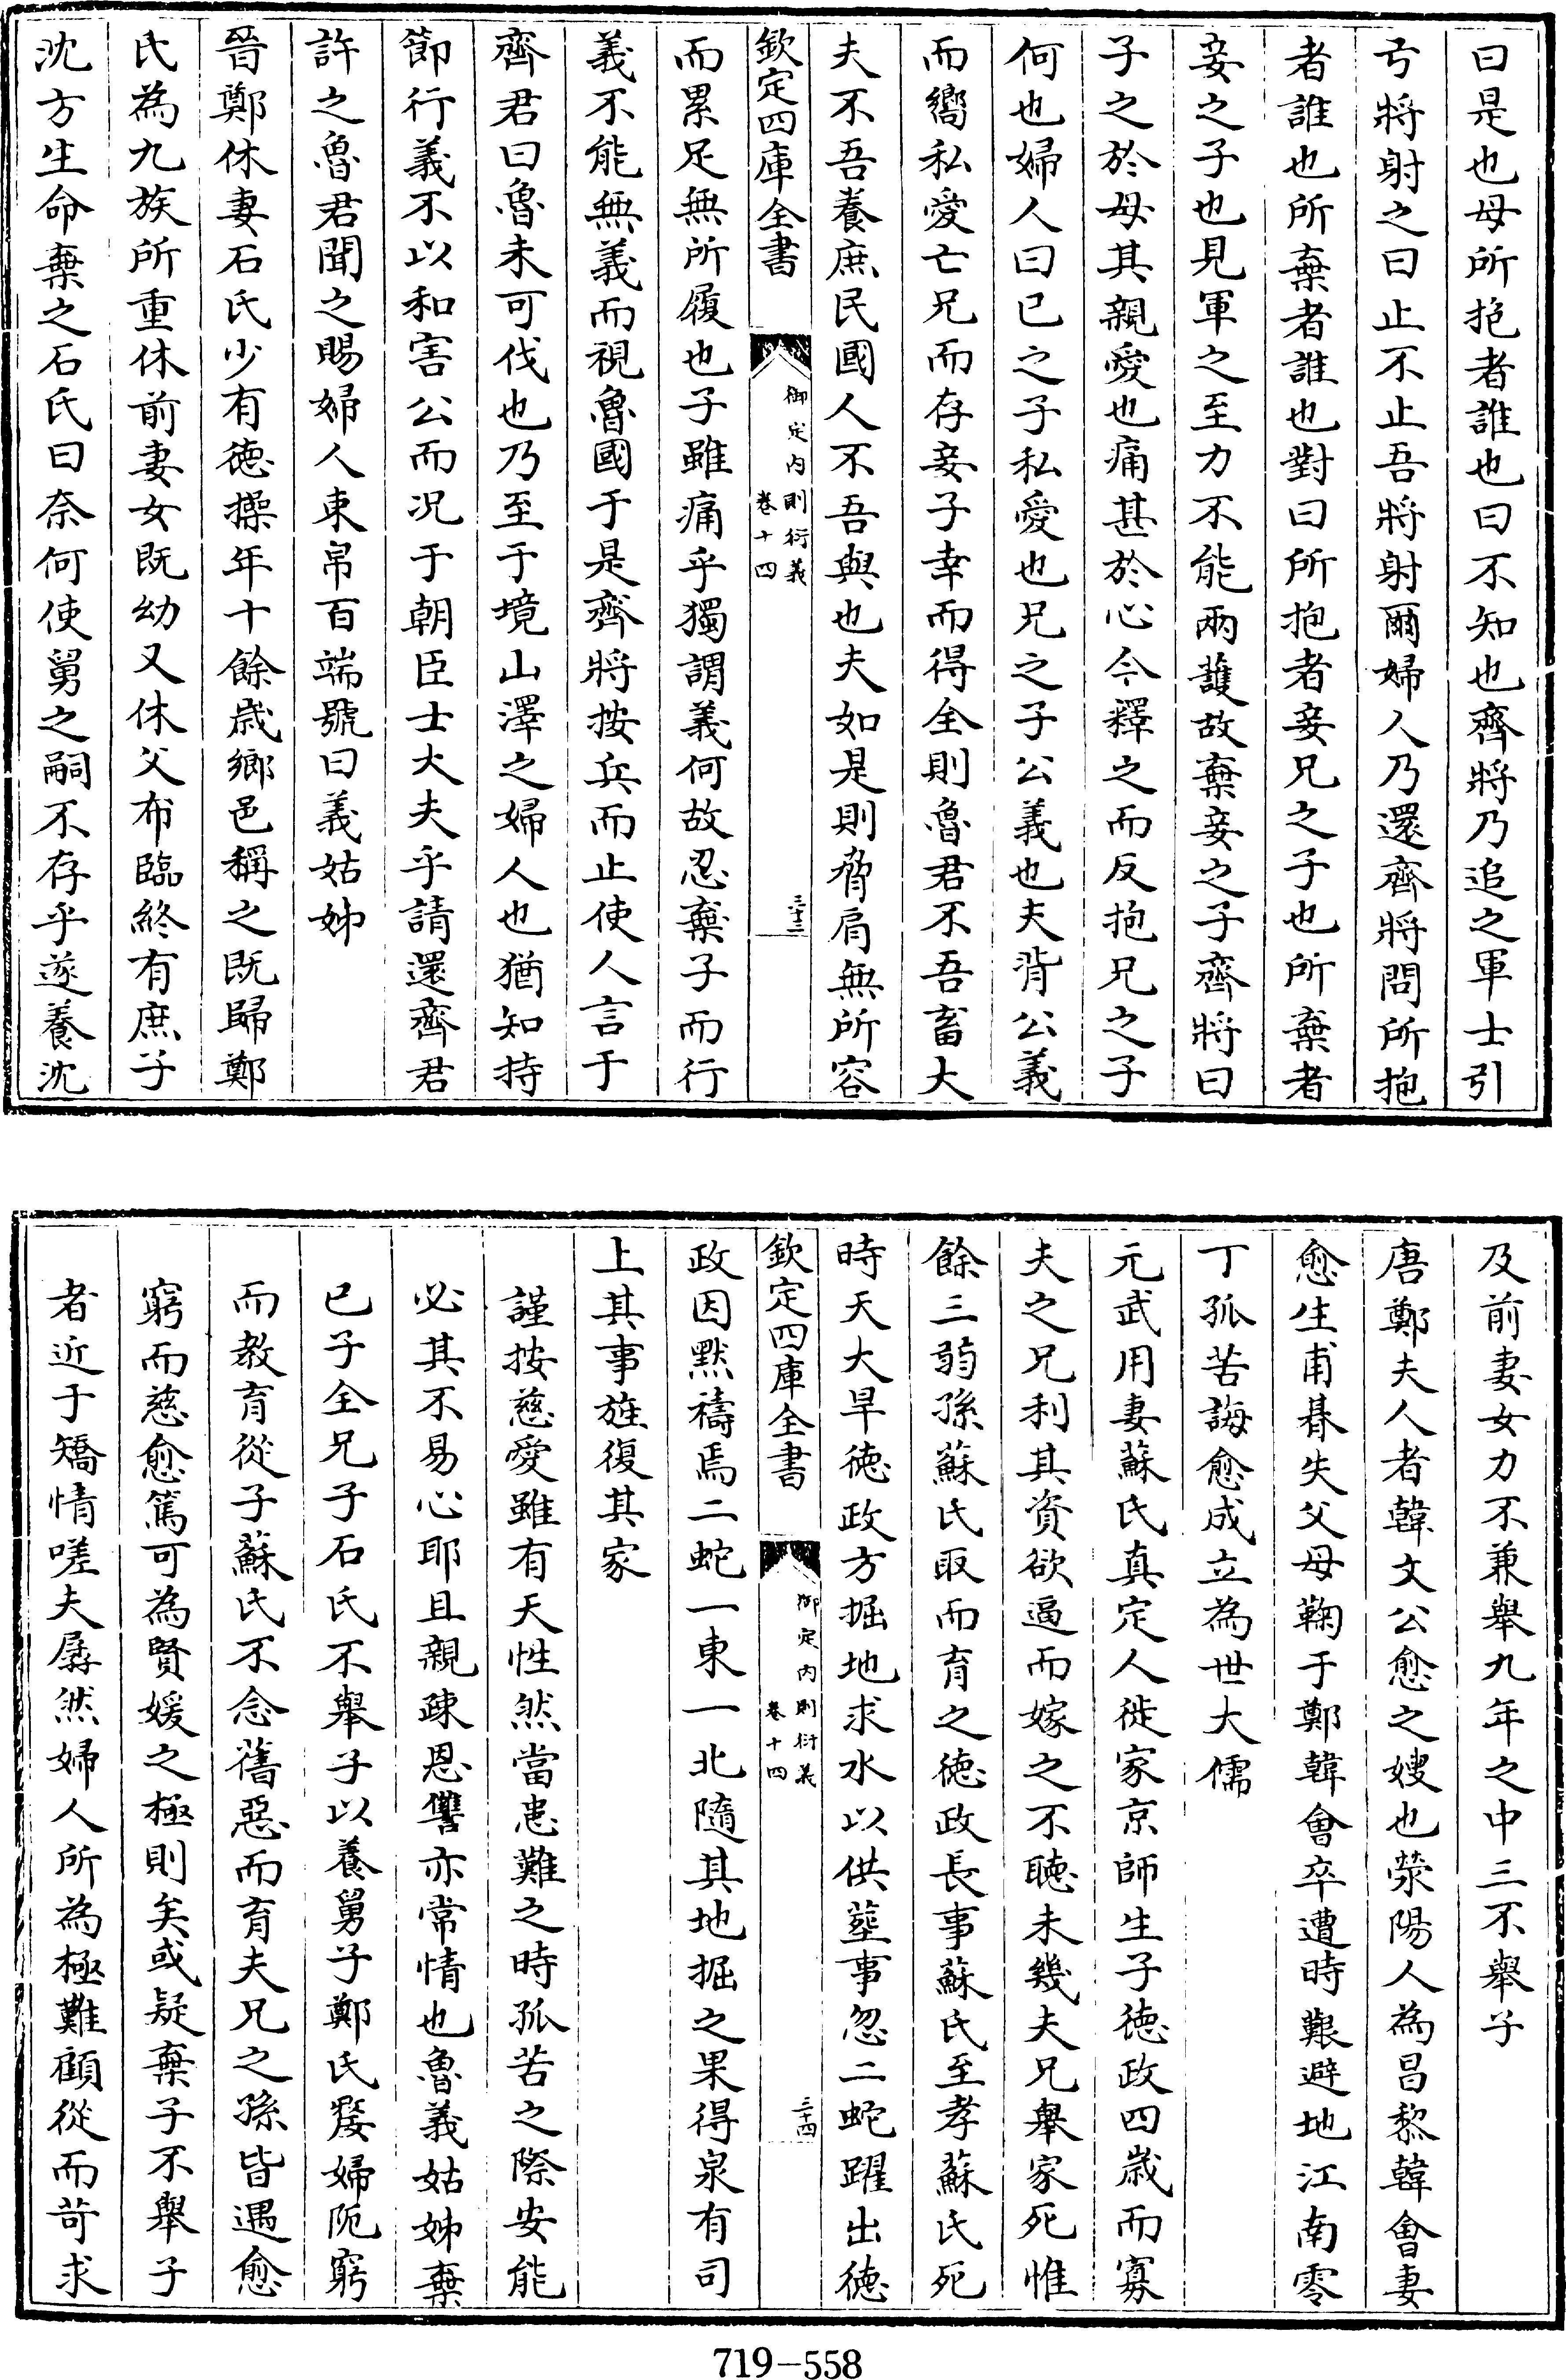 曰是也母所抱者誰也曰不知也齊將乃追之軍士引
弓將射之曰止不止吾將射爾婦人乃還齊將問所抱
者誰也所棄者誰也對曰所抱者妾兄之子也所棄者
妾之子也見軍之至力不能兩護故棄妾之子齊將曰
子之於母其親愛也痛甚於心今釋之而反抱兄之子
何也婦人曰已之子私愛也兄之子公義也夫背公義
而嚮私愛亡兄而存妾子幸而得全則魯君不吾畜大
夫不吾養庶民國人不吾與也夫如是則脅肩無所容
欽定四庫全書
御定內則衍義
卷十四
三十三
而累足無所履也子雖痛乎獨謂義何故忍棄子而行
義不能無義而視魯國于是齊將按兵而止使人言于
齊君曰魯未可伐也乃至于境山澤之婦人也猶知持
節行義不以和害公而况于朝臣士大夫乎請還齊君
許之魯君聞之賜婦人束帛百端號曰義姑姊
晉鄭休妻石氏少有徳操年十餘歲鄉邑稱之既歸鄭
氏為九族所重休前妻女既幼又休父布臨終有庶子
沈方生命棄之石氏曰奈何使舅之嗣不存乎遂養沈
及前妻女力不兼舉九年之中三不舉子
唐鄭夫人者韓文公愈之嫂也滎陽人為昌黎韓會妻
愈生甫朞失父母鞠于鄭韓會卒遭時艱避地江南零
丁孤苦誨愈成立為世大儒
元武用妻蘇氏真定人徙家京師生子徳政四歲而寡
夫之兄利其資欲逼而嫁之不聴未幾夫兄舉家死惟
餘三弱孫蘇氏取而育之徳政長事蘇氏至孝蘇氏死
時天大旱徳政方掘地求水以供塟事忽二蛇躍出徳
欽定四庫全書
御定內則衍義
卷十四
三十四
政因默禱焉二蛇一東一北隨其地掘之果得泉有司
上其事旌復其家
謹按慈愛雖有天性然當患難之時孤苦之際安能
必其不易心耶且親疎恩讐亦常情也魯義姑姊棄
已子全兄子石氏不舉子以養舅子鄭氏嫠婦阨窮
而教育從子蘇氏不念舊惡而育夫兄之孫皆遇愈
窮而慈愈篤可為賢媛之極則矣或疑棄子不舉子
者近于矯情嗟夫孱然婦人所為極難顧從而苛求
719-558